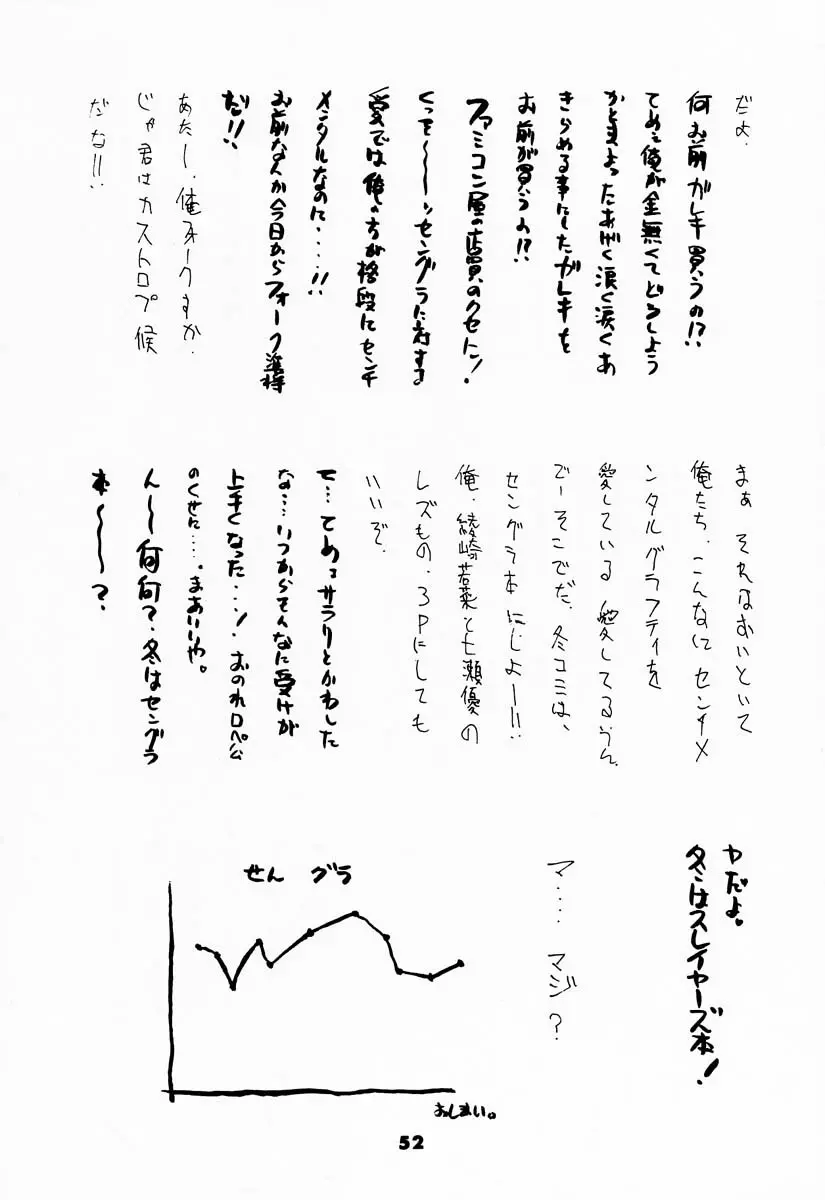 だよ.
何お前ガレキ買うの!?
てめぇ俺が金無くてどうしよう
かとまよったあげく涙く涙くあ
きらめる事にしたガレキを
お前が買うの!?
ファミコン屋の店員のクセに!
くっそ〜〜〜ッセングラに対する
愛では俺の方が格段にセンチ
メンタルなのに・・・・!!
お前なんか今日からフォーク准将
だ!!
あたー、俺フォークすか.
じゃ君はカストロプ候
だな!!
まぁ それはおいといて
俺たち、こんなにセンチメ
ンタルグラフティを
愛している 愛してるうん.
でーそこでだ、冬コミは、
セングラ本にしよー!!
俺、綾崎若菜と七瀬優の
レズもの.3Pにしても
いいぞ.
て…てめェサラリとかわした
な…いつからそんなに受けが
上手くなった・・・! おのれロペ公
のくせに・・・・。まあいいや。
ん〜何何?.冬はセングラ
本〜〜〜?.
ヤだよ。
冬はスレイヤーズ本!
マ・・・・ マジ?
せん グラ
おしまい。
52